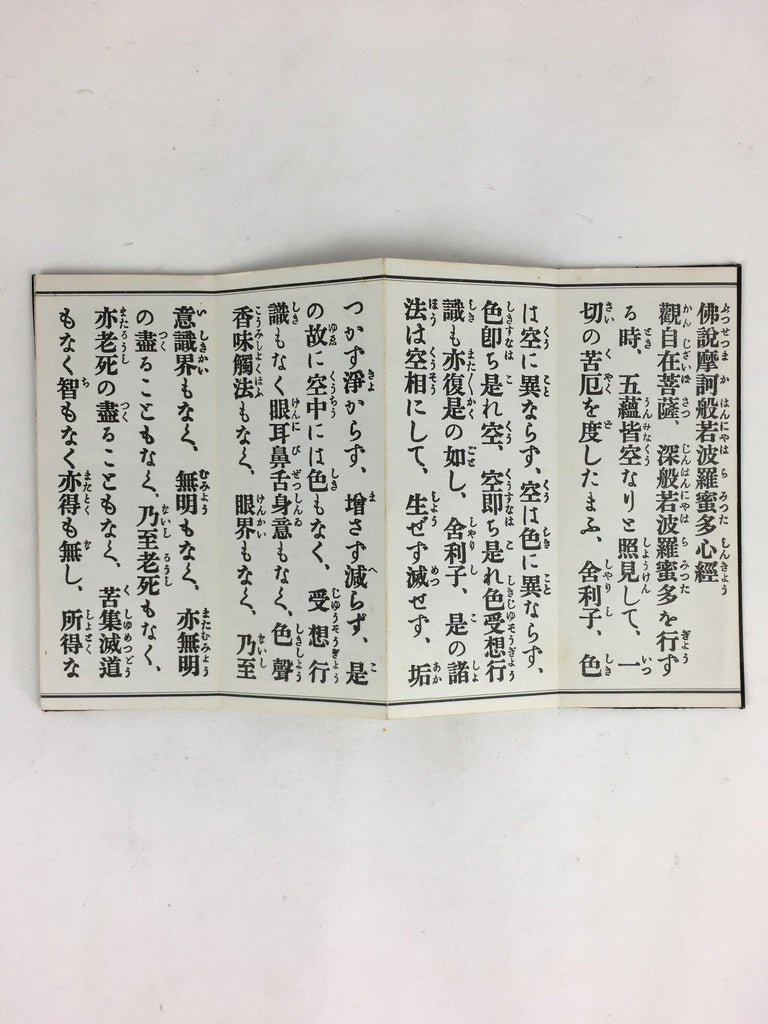 佛說摩訶般若波羅蜜多心經
觀自在菩薩、深般若波羅蜜多を行ず
る時、五蘊皆空なりと照見して、一
切の苦厄を度したまふ、舍利子、色
は空に異ならず、空は色に異ならず、
色卽ち是れ空、空卽ち是れ色受想行
識も亦復是の如し、舍利子、是の諸
法は空相にして、生ぜず滅せず、垢
つかず淨からず、增さず減らず、是
の故に空中には色もなく、受想行
識もなく眼耳鼻舌身意もなく、色聲
香味觸法もなく、眼界もなく、乃至
意識界もなく、無明もなく、亦無明
の盡ることもなく、乃至老死もなく、
亦老死の盡ることもなく、苦集滅道
もなく智もなく亦得も無し、所得な